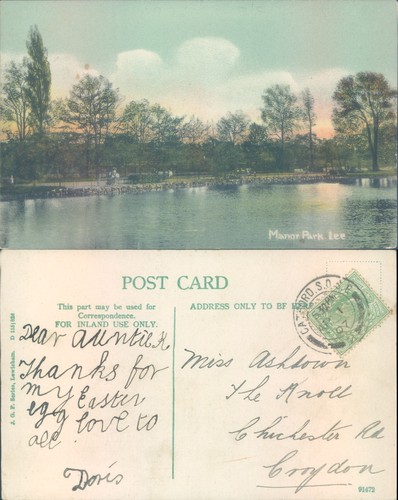 Manor Park Lee
POST CARD
This part may be used for
Correspondence.
FOR INLAND USE ONLY.
ADDRESS ONLY TO BE
CATFORD S.O.S.E
Dear Auntie K
Thanks for
my Easter
egg love to
all
Doris
Miss Ashdown
The Knoll
Chichester Rd
Croydon
J. & F. Series, Lewisham.
91672